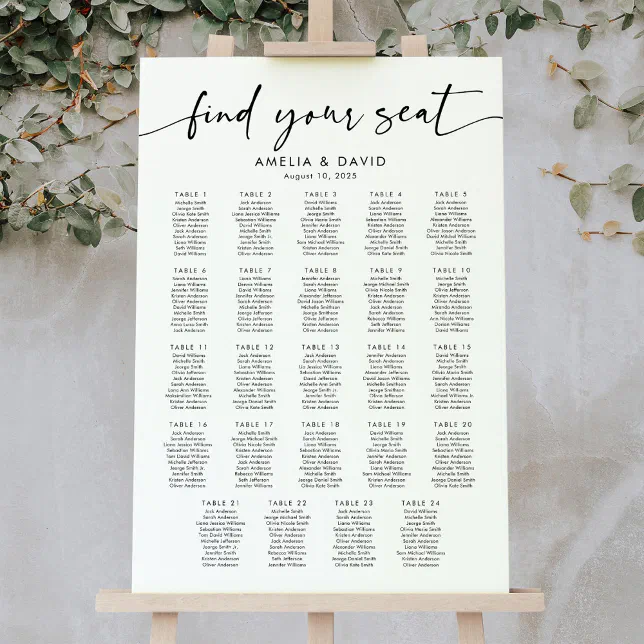 find your seat
AMELIA & DAVID
August 10, 2025
TABLE 1
Michelle Smith
Jeorge Smith
Olivia Kate Smith
Kristen Anderson
Oliver Anderson
Jack Anderson
Sarah Anderson
Liana Williams
Seth Williams
David Williams
TABLE 2
Jack Anderson
Sarah Anderson
Liana Jessica Williams
Sebastian Williams
David Williams
Michelle Smith
Jeorge Smith Jr.
Jennifer Smith
Kristen Anderson
Oliver Anderson
TABLE 3
David Williams
Michelle Smith
Jeorge Smith
Olivia Maria Smith
Jennifer Anderson
Sarah Anderson
Liana Williams
Sam Michael Williams
Kristen Anderson
Oliver Anderson
TABLE 4
Jack Anderson
Sarah Anderson
Liana Williams
Sebastian Williams
Kristen Anderson
Oliver Anderson
Michelle Smith
Jeorge Daniel Smith
Olivia Kate Smith
TABLE 5
Jeorge Smith
Jennifer Smith
Liana Williams
Alexander Williams
Kristen Anderson
Oliver Jason Anderson
Sarah Anderson
David Mitchel Williams
TABLE 6
Sarah Anderson
Liana Williams
Jennifer Williams
Kristen Anderson
Oliver Anderson
David Williams
Michelle Smith
Jeorge Jefferson
Anna Luisa Smith
Jack Anderson
TABLE 7
Liana Williams
Dereva Williams
David Williams
Michelle Smith
Jeorge Smith
Olivia Jefferson
Jack Anderson
Sarah Anderson
Kristen Anderson
Oliver Anderson
TABLE 8
Sarah Anderson
Liana Williams
Alexander Jefferson
David Jason Williams
Michelle Smith
Jeorge Smith
Jennifer Smith
Olivia Smith
Kristen Anderson
Oliver Anderson
TABLE 9
Michelle Smith
Jeorge Michael Smith
Olivia Nicole Smith
Kristen Anderson
Oliver Anderson
Jack Anderson
Sarah Anderson
Rebecca Williams
Seth Jefferson
Jennifer Williams
TABLE 10
Michelle Smith
Jeorge Smith
Olivia Jefferson
Kristen Anderson
Oliver Anderson
Miranda Anderson
Sarah Anderson
Ann Nicole Williams
Dorian Williams
David Williams
TABLE 11
David Williams
Michelle Smith
Jeorge Smith
Olivia Jefferson
Jack Anderson
Sarah Anderson
Lana Ann Williams
Maksimilian Williams
Kristen Anderson
Oliver Anderson
TABLE 12
Jack Anderson
Sarah Anderson
Liana Williams
Sebastian Williams
Kristen Anderson
Oliver Anderson
Alexander Williams
Michelle Smith
Jeorge Daniel Smith
Olivia Kate Smith
TABLE 13
Jack Anderson
Sarah Anderson
Lia Jessica Williams
Sebastian Williams
David Williams
Michelle Ann Smith
Jeorge Smith Jr.
Jennifer Smith
Kristen Anderson
Oliver Anderson
TABLE 14
Jennifer Anderson
Sarah Anderson
Liana Williams
Alexander Jefferson
David Jason Williams
Michelle Smith
Jeorge Smithson
Olivia Smith
Kristen Anderson
Oliver Anderson
TABLE 15
David Williams
Michelle Smith
Jeorge Smith
Olivia Maria Smith
Jack Anderson
Sarah Anderson
Liana Williams
Michael Williams Jr.
Kristen Anderson
Oliver Anderson
TABLE 16
Jack Anderson
Sarah Anderson
Liana Jessica Williams
Sebastian Williams
Tom David Williams
Michelle Jefferson
Jeorge Smith Jr.
Jennifer Smith
Kristen Anderson
Oliver Anderson
TABLE 17
Michelle Smith
Jeorge Michael Smith
Olivia Nicole Smith
Kristen Anderson
Oliver Anderson
Jack Anderson
Sarah Anderson
Rebecca Williams
Seth Jefferson
Jennifer Williams
TABLE 18
Jack Anderson
Sarah Anderson
Liana Williams
Sebastian Williams
Kristen Anderson
Oliver Anderson
Alexander Williams
Michelle Smith
Jeorge Daniel Smith
Olivia Kate Smith
TABLE 19
David Williams
Michelle Smith
Jeorge Smith
Olivia Maria Smith
Jennifer Anderson
Sarah Anderson
Liana Williams
Sam Michael Williams
Kristen Anderson
Oliver Anderson
TABLE 20
Jack Anderson
Sarah Anderson
Liana Williams
Sebastian Williams
Kristen Anderson
Oliver Anderson
Alexander Williams
Michelle Smith
Jeorge Daniel Smith
Olivia Kate Smith
TABLE 21
Jack Anderson
Sarah Anderson
Liana Jessica Williams
Sebastian Williams
Tom David Williams
Michelle Jefferson
Jeorge Smith Jr.
Jennifer Smith
Kristen Anderson
Oliver Anderson
TABLE 22
Michelle Smith
Jeorge Michael Smith
Olivia Nicole Smith
Kristen Anderson
Oliver Anderson
Jack Anderson
Sarah Anderson
Rebecca Williams
Seth Jefferson
Jennifer Williams
TABLE 23
Jack Anderson
Sarah Anderson
Liana Williams
Sebastian Williams
Kristen Anderson
Oliver Anderson
Alexander Williams
Michelle Smith
Jeorge Daniel Smith
Olivia Kate Smith
TABLE 24
David Williams
Michelle Smith
Jeorge Smith
Olivia Maria Smith
Jennifer Anderson
Sarah Anderson
Liana Williams
Sam Michael Williams
Kristen Anderson
Oliver Anderson